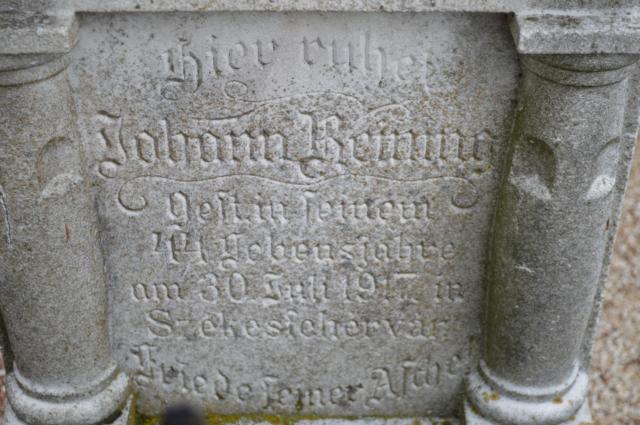 Hier ruhet
Johann Reining
Gest. in seinem
44 Lebensjahre
am 30. Juli 1917 in
Székesfehervár
Friede seiner Asche!